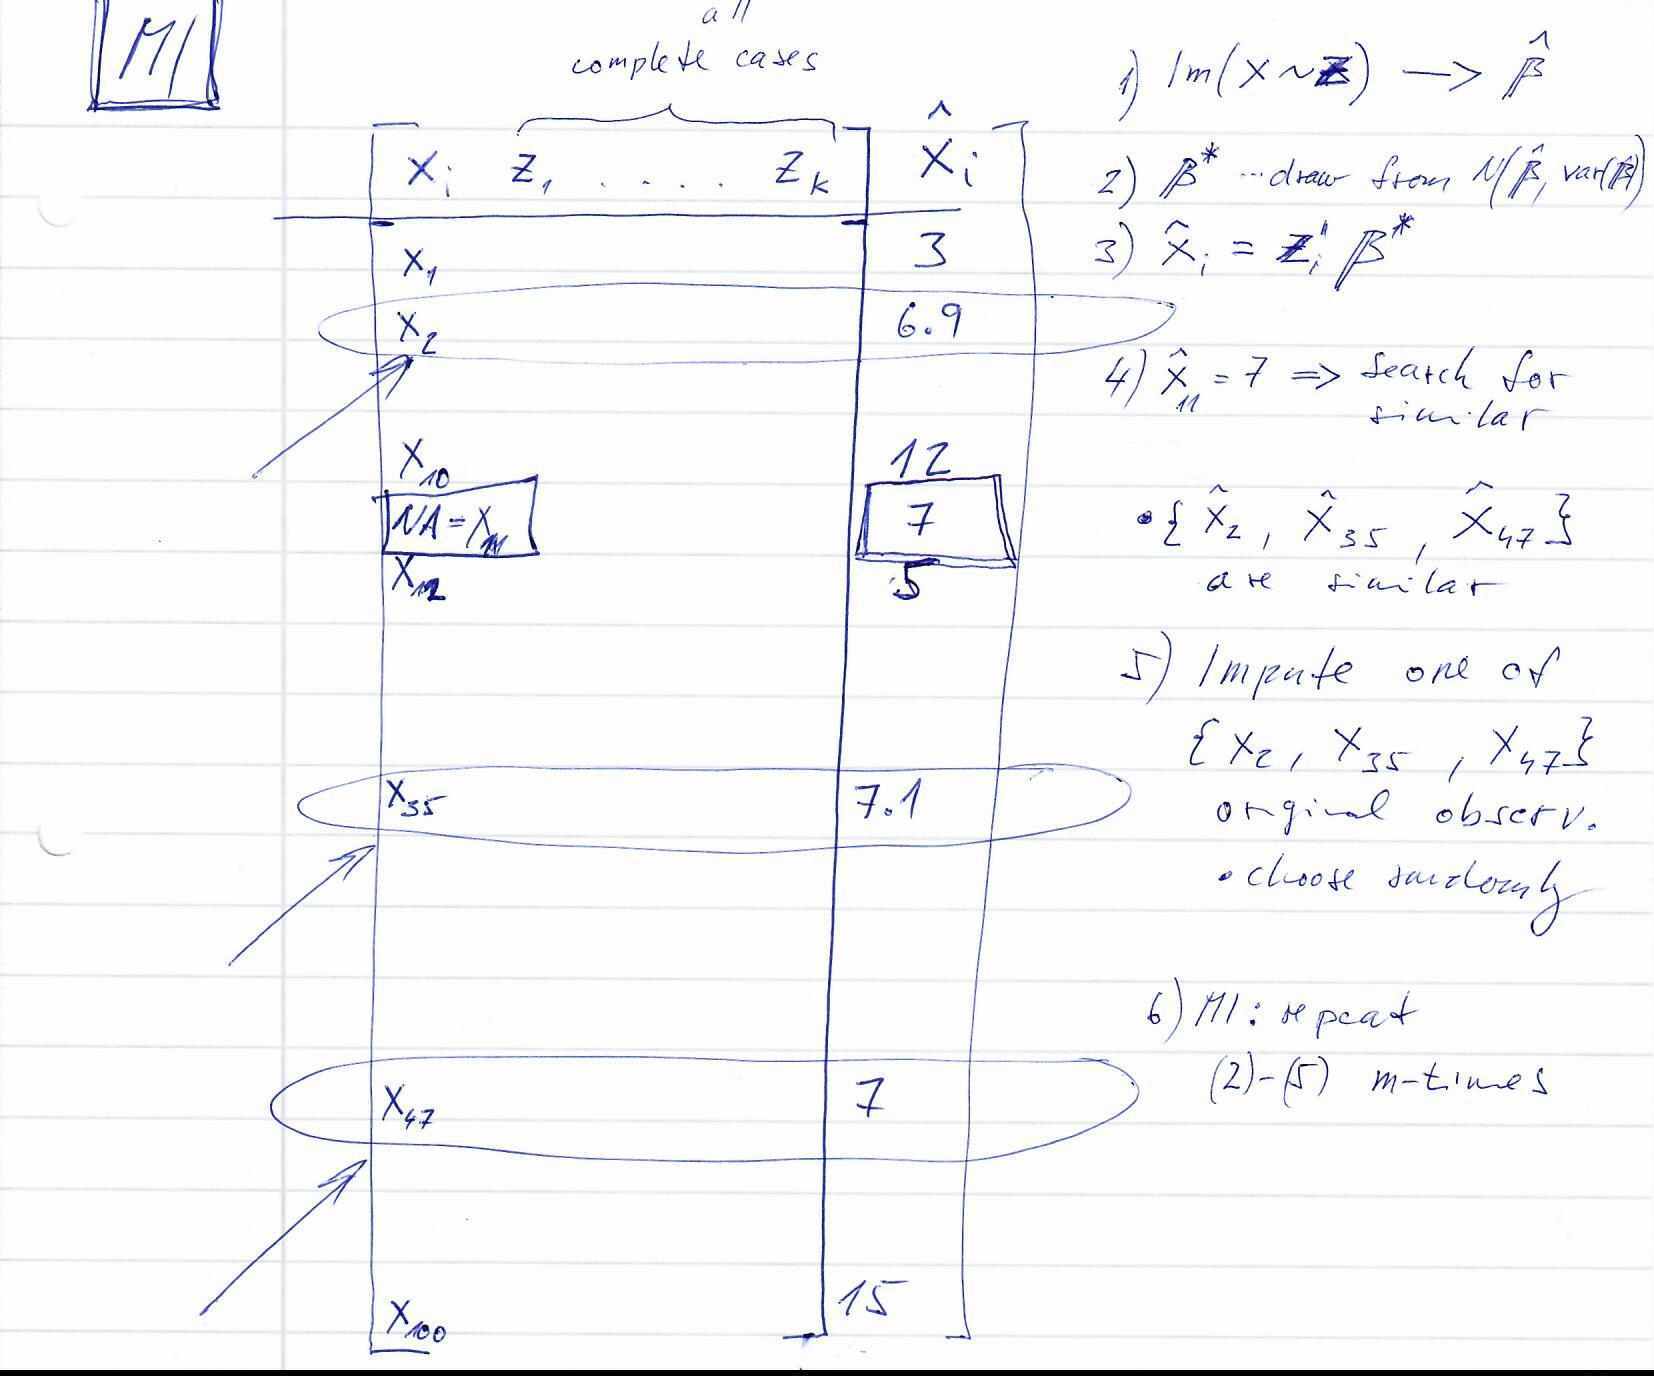 MI
all
complete cases
X_i Z_1 . . . . . Z_k X̂_i
X_1 3
X_2 6.9
X_10 12
NA = X_11 7
X_12 5
X_35 7.1
X_47 7
X_100 15
1) lm(X ~ Z) → β̂
2) β* ... draw from N(β̂, var(β̂))
3) X̂_i = Z_i' β*
4) X̂_11 = 7 => search for
similar
• { X̂_2, X̂_35, X̂_47 }
are similar
5) Impute one of
{ X_2, X_35, X_47 }
original observ.
• choose randomly
6) MI: repeat
(2)-(5) m-times